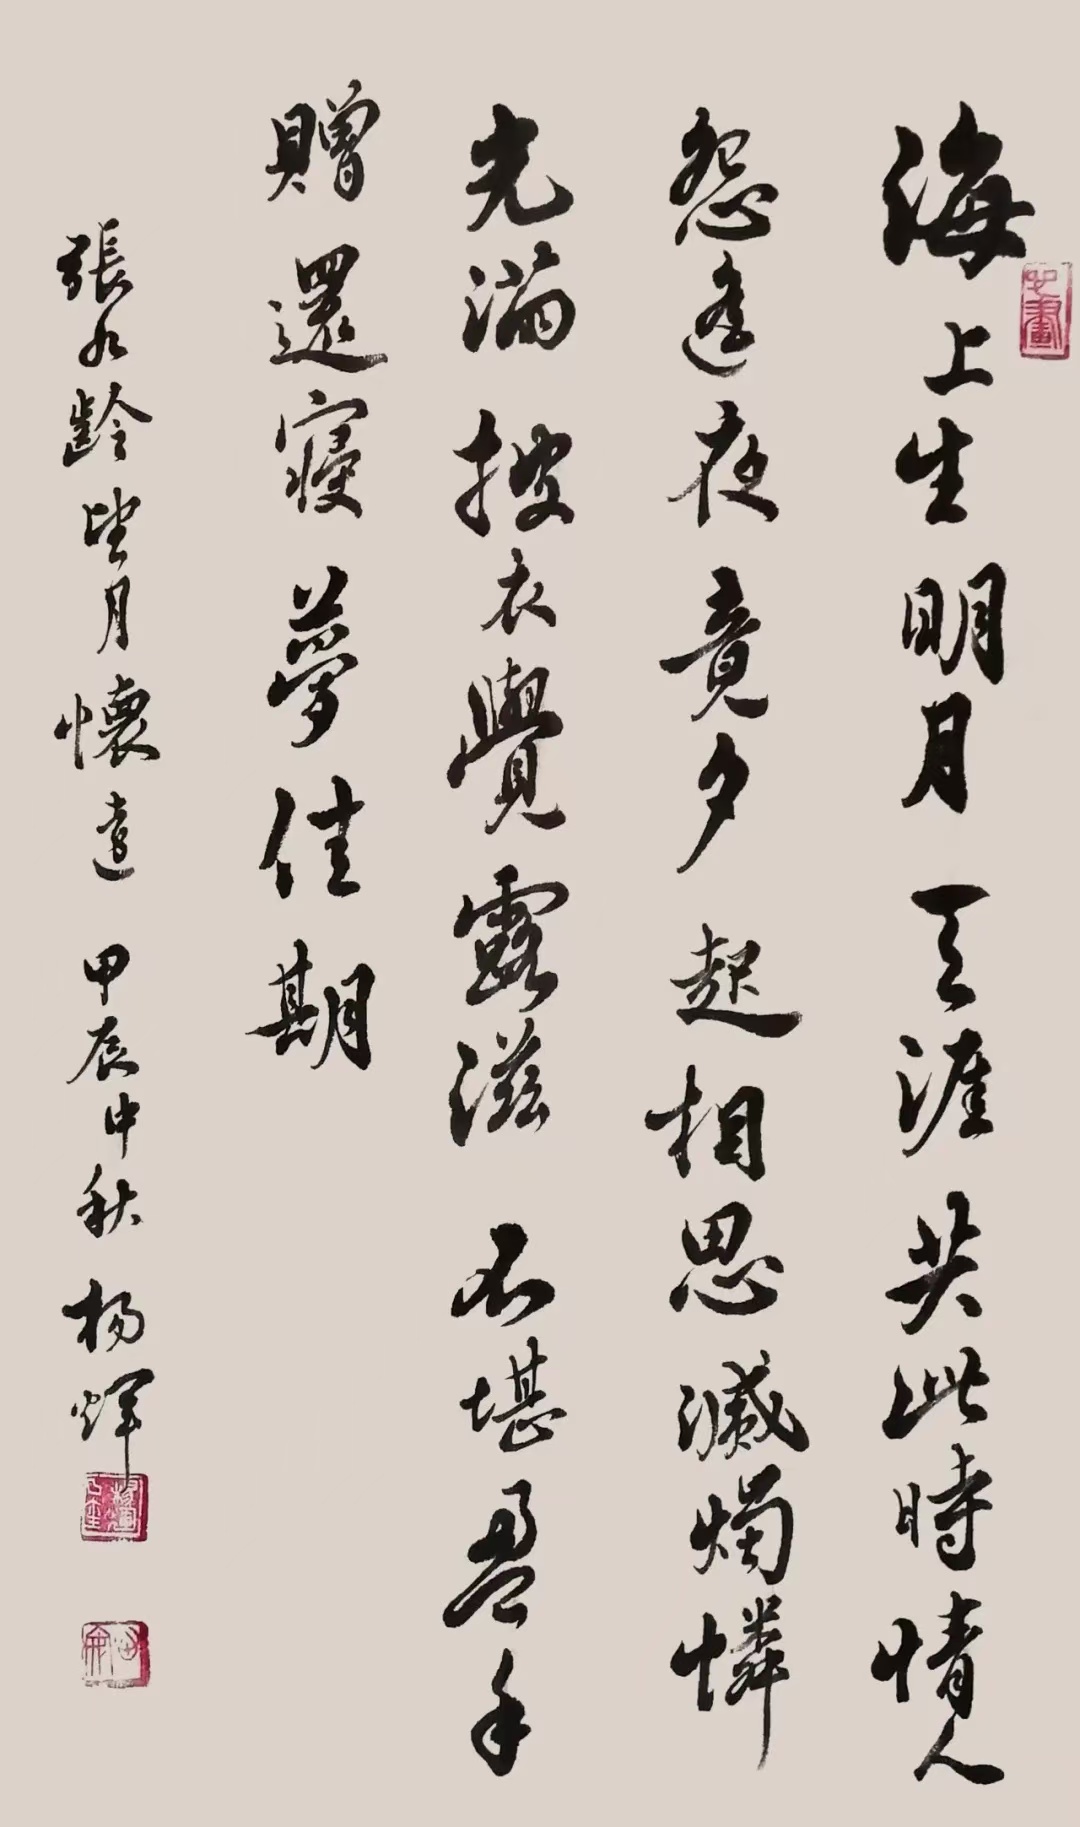 海上生明月天涯共此時情人
怨遙夜竟夕起相思滅燭憐
光滿披衣覺露滋不堪盈手
贈還寢夢佳期
張九齡望月懷遠 甲辰中秋 楊輝